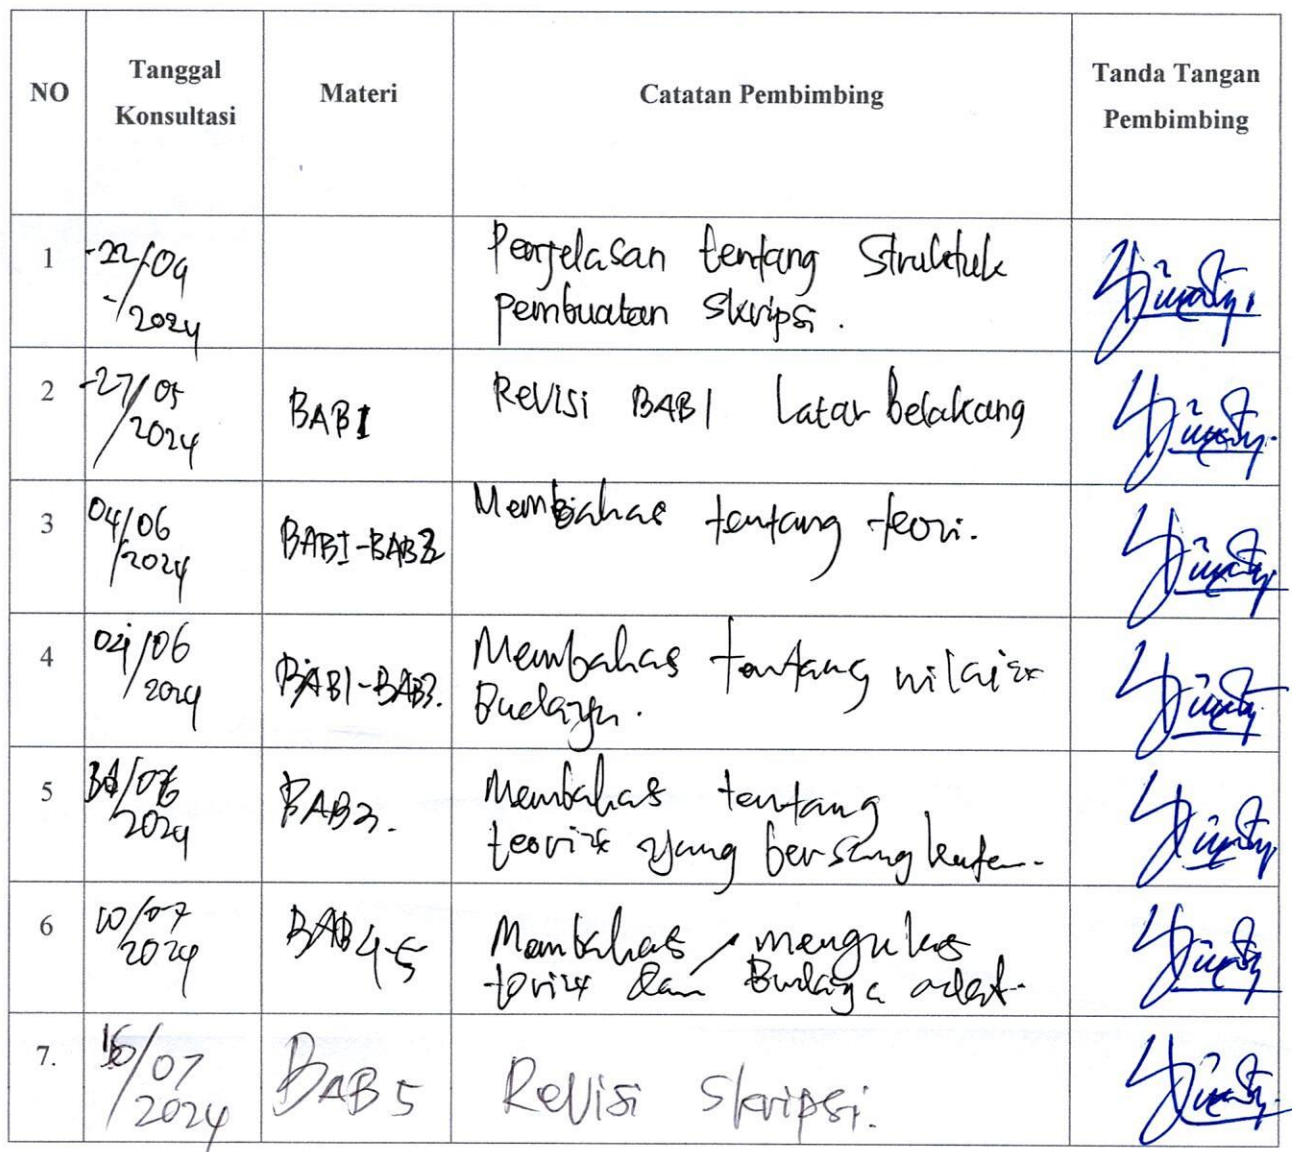 NO
Tanggal Konsultasi
Materi
Catatan Pembimbing
Tanda Tangan Pembimbing
1
22/04
2024
Penjelasan tentang Struktuk
pembuatan skripsi.
2
27/05
2024
BAB 1
Revisi BAB 1 Latar belakang
3
04/06
2024
BAB I-BAB 2
Membahas tentang teori.
4
04/06
2024
BAB 1-BAB 3.
Membahas tentang nilai
Budaya.
5
/06
2024
BAB 2.
Membahas tentang
teori yang bersangkutan.
6
10/07
2024
BAB 4-5
Membahas / mengulas
teori dan Budaya adat.
7.
/07
2024
BAB 5
Revisi Skripsi.